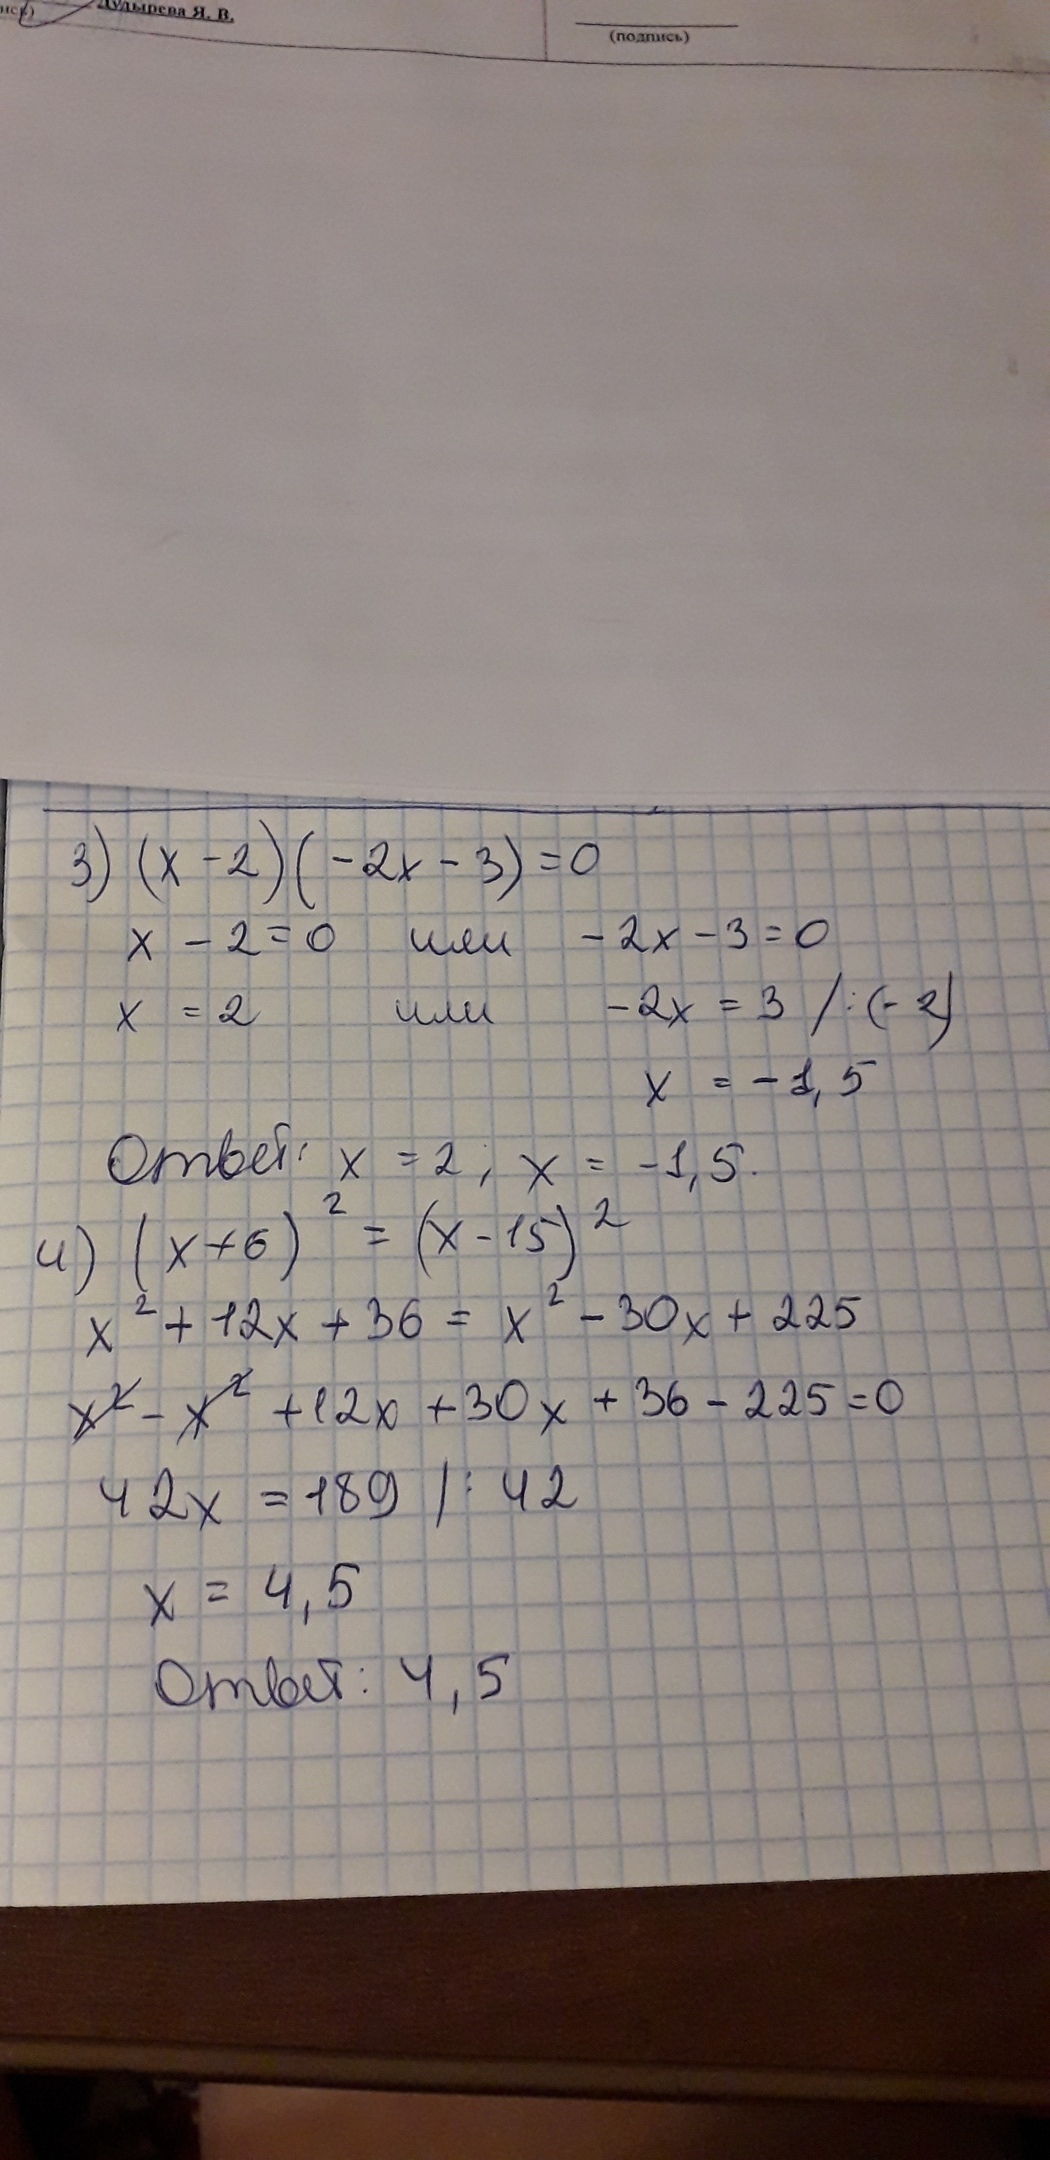 Я. В.
(подпись)
3) (x - 2)(-2x - 3) = 0
x - 2 = 0 или -2x - 3 = 0
x = 2 или -2x = 3 / : (-2)
x = -1,5
Ответ: x = 2; x = -1,5.
4) (x+6)² = (x - 15)²
x² + 12x + 36 = x² - 30x + 225
x² - x² + 12x + 30x + 36 - 225 = 0
42x = 189 / : 42
x = 4,5
Ответ: 4,5